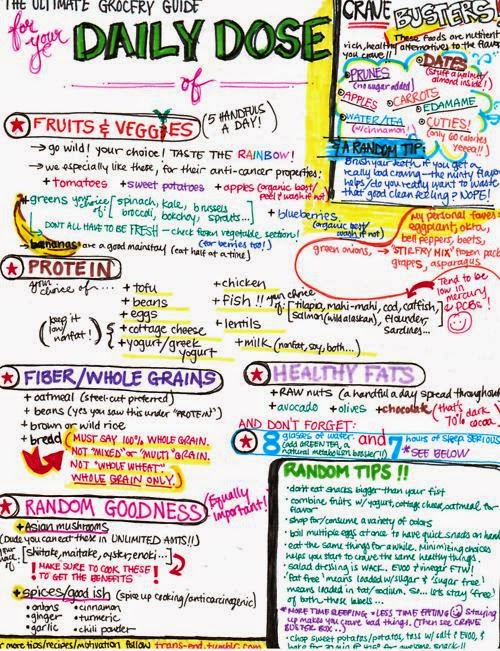 THE ULTIMATE GROCERY GUIDE
for your
DAILY DOSE
of
CRAVE
BUSTERS!
These foods are nutrient
rich, healthy alternatives to the flavor
you crave!!
PRUNES
(no sugar added)
DATES
(stuff a walnut/
almond inside!)
APPLES
CARROTS
EDAMAME
WATER/TEA
(w/cinnamon!)
CUTIES!
(only 60 calories
yeeea!!)
A RANDOM TIP:
Brush your teeth if you get a
really bad craving - the minty flavor
helps/do you really want to waste
that good clean feeling? NOPE!
FRUITS & VEGGIES
(5 HANDFULS
A DAY!)
→ go wild! your choice! TASTE THE RAINBOW!
→ we especially like these, for their anti-cancer properties:
+tomatoes +sweet potatoes +apples (organic best/
Peel if wash it not
+greens your choice of: [spinach, kale, brussels
brocoli, bokchoy, sprouts...]
+blueberries
(organic best/
wash if not)
DON'T ALL HAVE TO BE FRESH - check frozen vegetable section!
(for berries too!)
→ bananas are a good mainstay (eat half at a time)
my personal faves:
eggplant, okra,
bell peppers, beets,
green onions, → "STIR FRY MIX" frozen pack
grapes, asparagus
PROTEIN
your choice of...
+tofu
+beans
+eggs
+cottage cheese
+yogurt/greek
yogurt
(keep it
low/
nonfat!)
+chicken
+fish!! your choice of:
[tilapia, mahi-mahi, cod, catfish,
salmon (wild alaskan), flounder,
sardines...]
+lentils
+milk (nonfat, soy, both...)
Tend to be
low in
mercury
& PCBs!
FIBER/WHOLE GRAINS
+oatmeal (steel-cut preferred)
+beans (yes you saw this under "PROTEIN")
+brown or wild rice
+bread
(MUST SAY 100% WHOLE GRAIN.
NOT "MIXED" or "MULTI" GRAIN.
NOT "WHOLE WHEAT"
WHOLE GRAIN ONLY.)
HEALTHY FATS
+RAW nuts (a handful a day spread throughout
+avocado +olives +chocolate (that's dark
70% cocoa
AND DON'T FORGET:
8 glasses of water
(add GREEN TEA, a
natural metabolism booster!!)
and 7 hours of sleep SERIOUS
*SEE BELOW
RANDOM GOODNESS
(Equally
important!)
+Asian mushrooms
(Dude you can eat these in UNLIMITED AMTS!!)
[shiitake, maitake, oyster, enoki...]
! MAKE SURE TO COOK THESE
TO GET THE BENEFITS
+spices/good ish (spice up cooking/anticarcinogenic)
onions
ginger
garlic
cinnamon
turmeric
chili powder
for more tips/recipes/motivation follow trans-end.tumblr.com
RANDOM TIPS!!
don't eat snacks bigger than your fist
combine fruits w/yogurt, cottage cheese, oatmeal for
flavor
shop for/consume a variety of colors
boil multiple eggs at once to have quick snacks on hand
eat the same things for awhile. Minimizing choices
helps you start to crave the same healthy things
salad dressing is WACK. EVOO & vinegar FTW!
"fat free" means loaded w/sugar & "sugar free"
means loaded in fat/sodium. So... lets stay free!
of both those labels...
MORE TIME SLEEPING = LESS TIME EATING Staying
up makes you crave bad things. (Then see CRAVE
BUSTER BOX...)
chop sweet potatos/potatos, toss w/ salt & EVOO, &